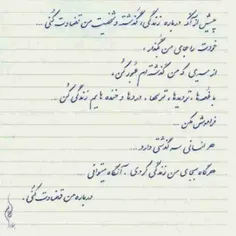 پیش از آنکه درباره زندگی، گذشته و شخصیت من قضاوت کنی...
خودت را جای من بگذار،
از مسیری که من گذشته ام عبور کن،
با غصه‌ها، تردیدها، ترسها، دردها و خنده هایم زندگی کن...
فراموش نکن...
هر انسانی سرگذشتی دارد...
هرگاه بجای من زندگی کردی، آنگاه میتوانی
درباره من قضاوت کنی.